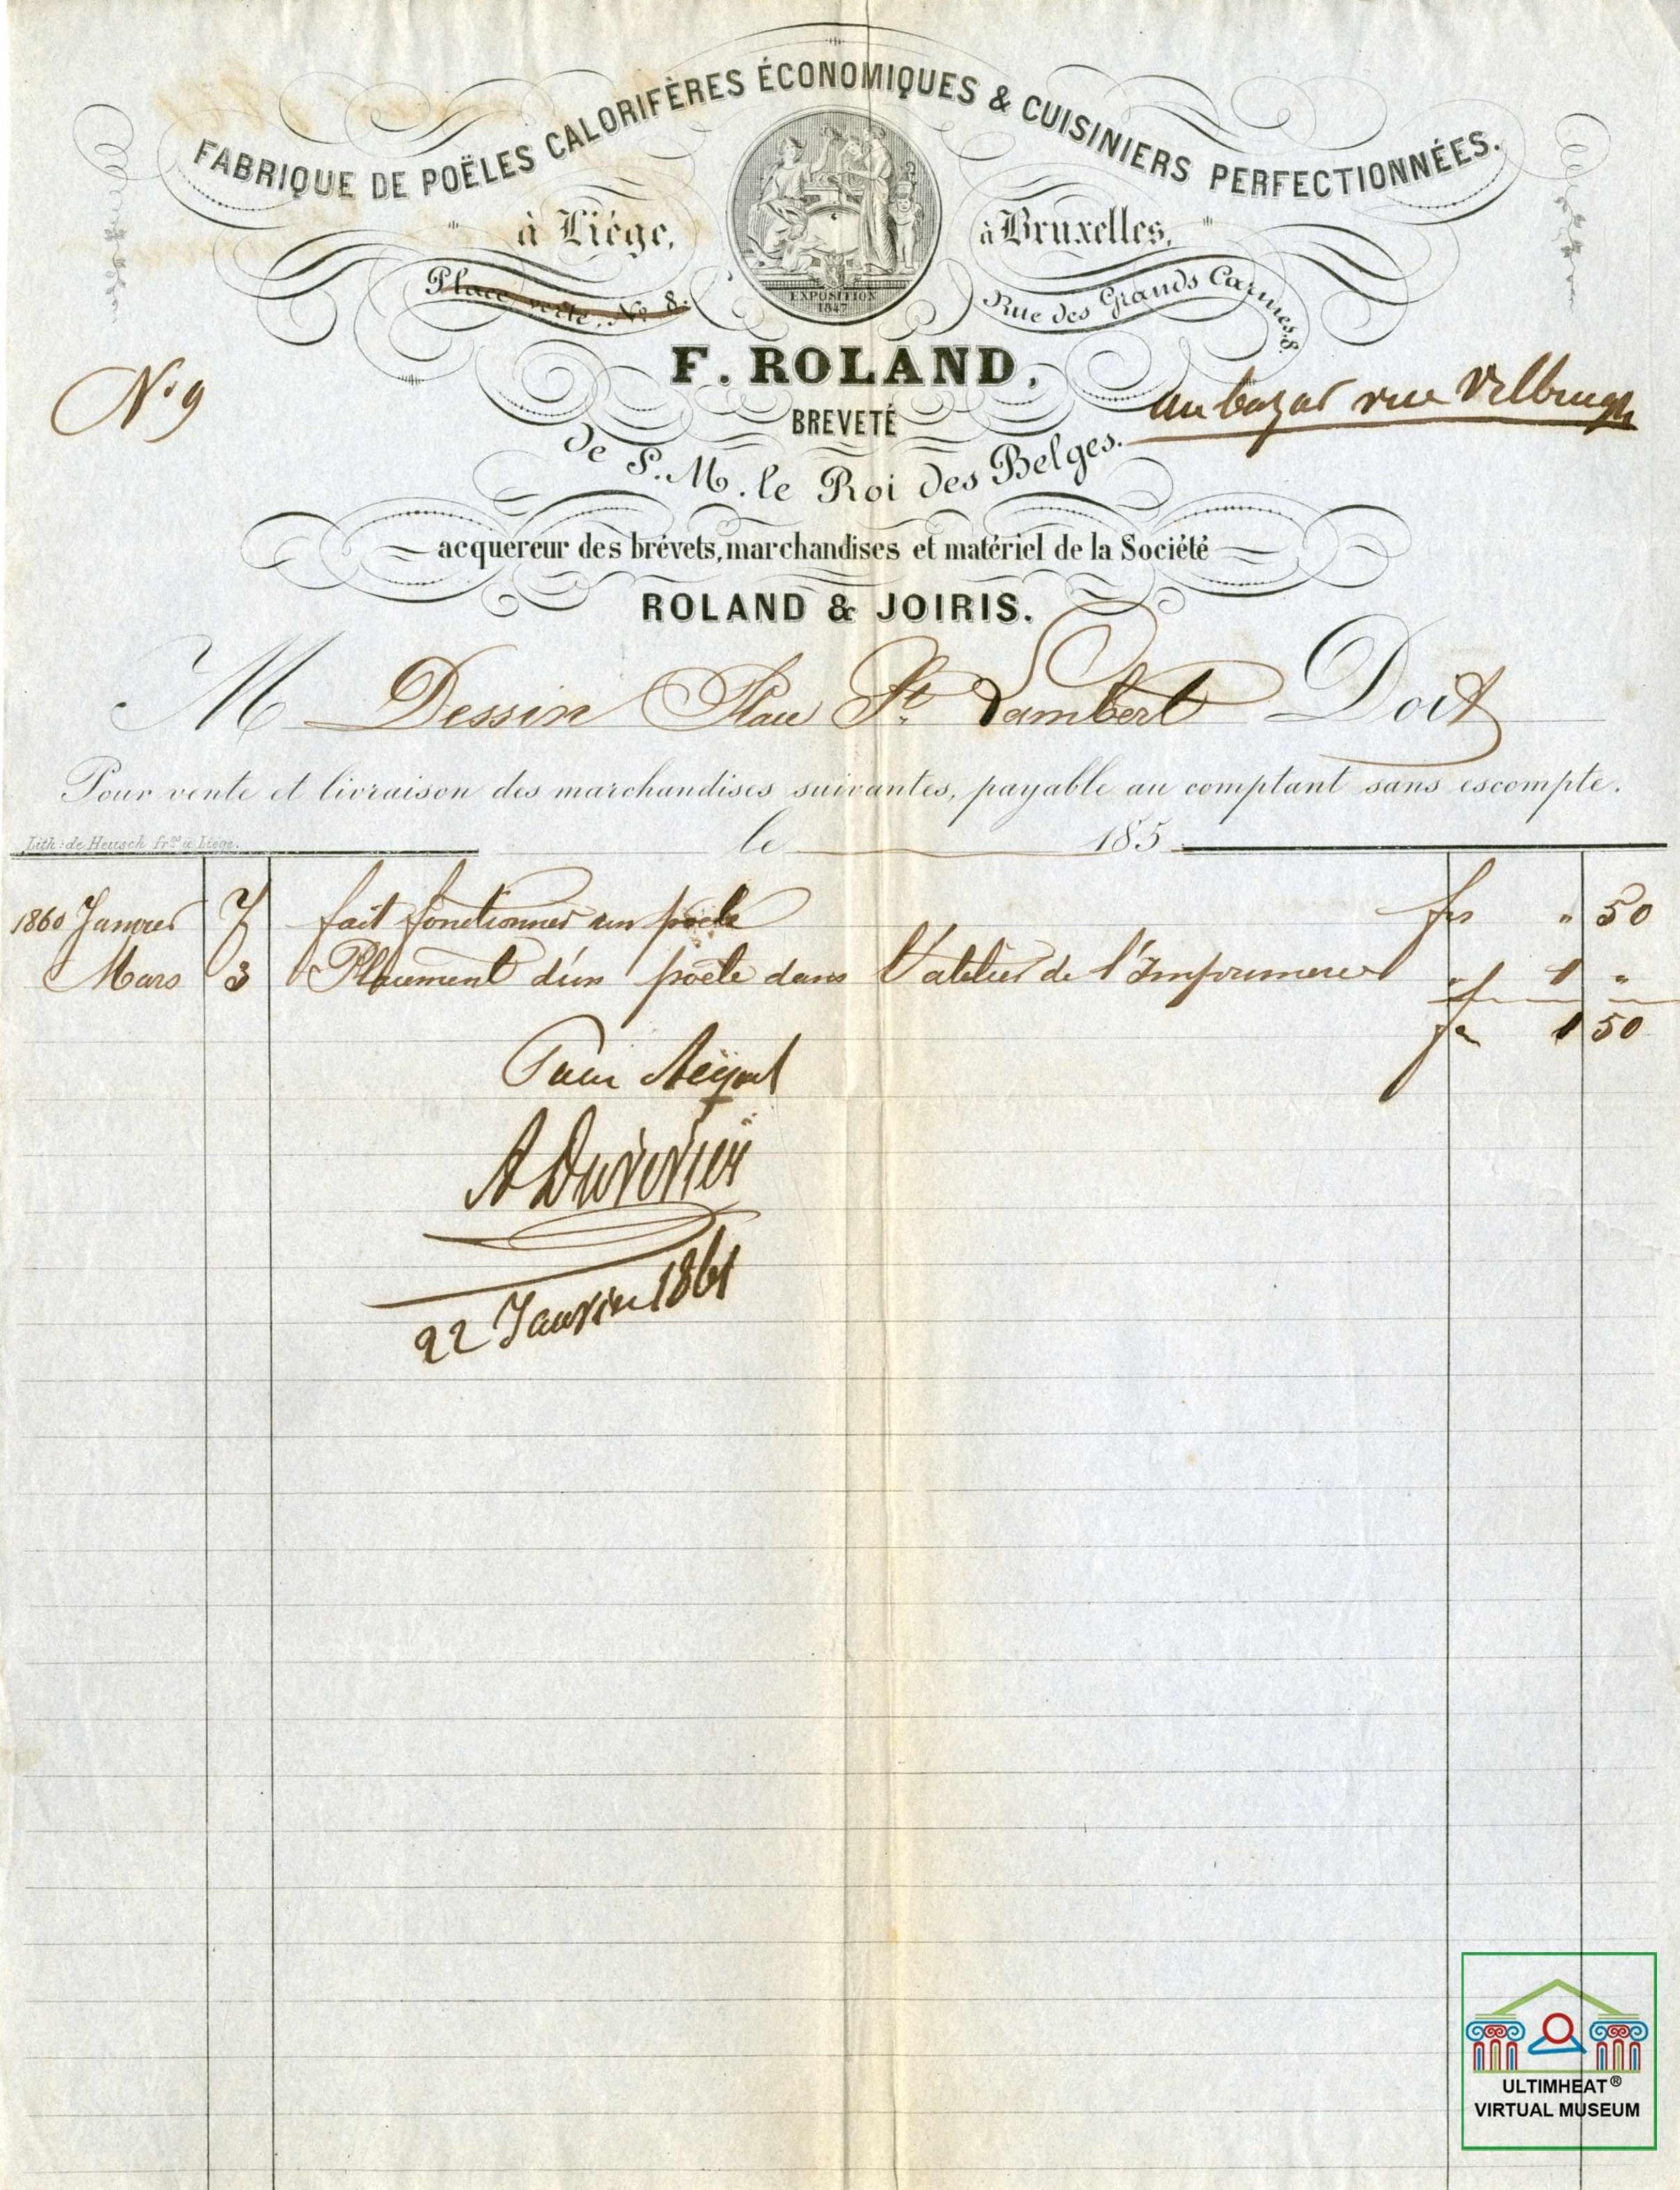 FABRIQUE DE POËLES CALORIFÈRES ÉCONOMIQUES & CUISINIERS PERFECTIONNÉES.
à Liége,
à Bruxelles,
Place verte, No 8.
Rue des Grands Carmes. 8.
EXPOSITION
1847
F. ROLAND,
No 9
au bazar rue
BREVETÉ
de S. M. le Roi des Belges.
acquereur des brévets, marchandises et matériel de la Société
ROLAND & JOIRIS.
M Dessin Place St Lambert Doit
Pour vente et livraison des marchandises suivantes, payable au comptant sans escompte.
Lith: de Heusch fres a Liége.
le 185
1860 Janvier 7 fait fonctionner un poele frs " 50
Mars 3 Placement d'un poële dans l'atelier de l'Imprimerie " 1 "
fr 1 50
Pour Acquit
A Duvivier
22 Janvier 1861
ULTIMHEAT®
VIRTUAL MUSEUM